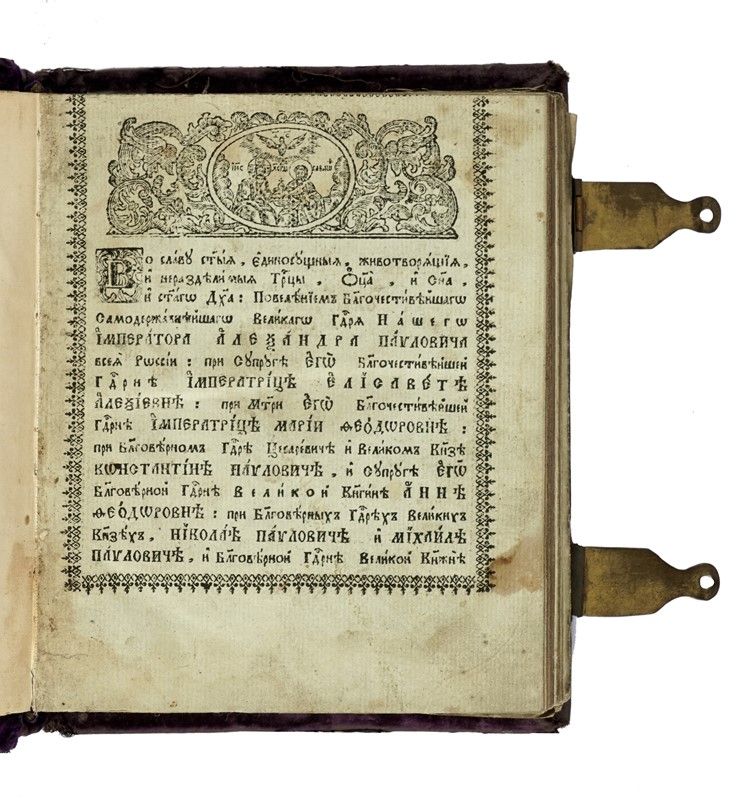 Во славу ст҃ыѧ, єдиносꙋщныѧ, животворѧщїѧ,
и нераздѣлимыѧ Трⷪ҇цы, Ѻц҃а, и Сн҃а,
и ст҃агѡ Дх҃а: Повелѣнїемъ Бл҃гочестивѣйшагѡ
Самодержавнѣйшагѡ Великагѡ Гдⷭ҇рѧ Нашегѡ
Імператора Алеѯандра Паѵловича
всеѧ Рѡссїи: при Сꙋпрꙋгѣ Єгѡ̀ Бл҃гочестивѣйшей
Гдⷭ҇рнѣ Імператрїцѣ Єлїсавеѳѣ
Алеѯїевнѣ: при Мт҃ри Єгѡ̀ Бл҃гочестивѣйшей
Гдⷭ҇рнѣ Імператрицѣ Марїи Ѳеодѡровнѣ:
при Бл҃говѣрномъ Гдⷭ҇рѣ Цесаревичѣ и Великомъ Кн҃зѣ
Кѡнстантїнѣ Паѵловичѣ, и Сꙋпрꙋгѣ Єгѡ̀
Бл҃говѣрной Гдⷭ҇рнѣ Великой Кн҃гинѣ Аннѣ
Ѳеодѡровнѣ: при Бл҃говѣрныхъ Гдⷭ҇рѣхъ Великихъ
Кн҃зѣхъ, Нїколаѣ Паѵловичѣ и Мїхаилѣ
Паѵловичѣ, и Бл҃говѣрной Гдⷭ҇рнѣ Великой Кнѧжнѣ